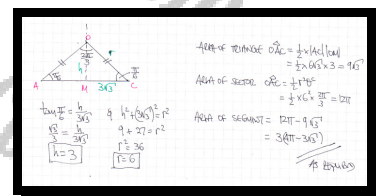 O
2π/3
r
h
π/6
π/6
A
M
3√3
C
tan π/6 = h/3√3
√3/3 = h/3√3
h=3
& h²+(3√3)²=r²
9+27=r²
r²=36
r=6
AREA OF TRIANGLE OAC = ½|AC||OM|
= ½×6√3×3 = 9√3
AREA OF SECTOR OAC = ½r²θ
= ½×6²×2π/3 = 12π
AREA OF SEGMENT = 12π-9√3
= 3(4π-3√3)
AS REQUIRED